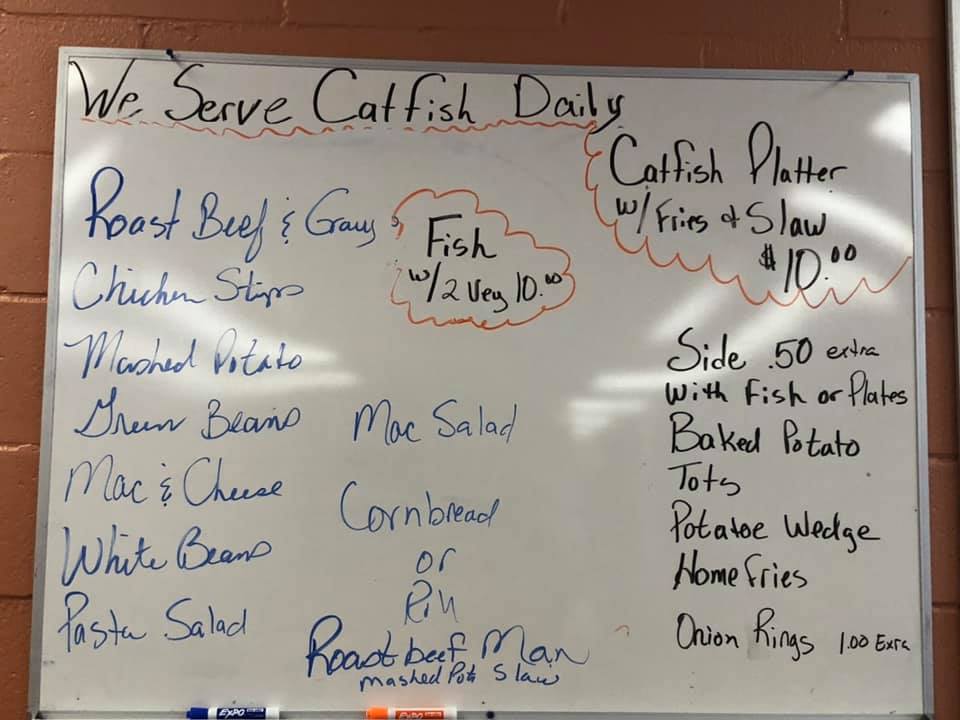 We Serve Catfish Daily
Catfish Platter
w/ Fries & Slaw
$10.00
Roast Beef & Gravy
Fish
w/2 Veg 10.00
Chicken Strips
Mashed Potato
Green Beans
Mac & Cheese
White Beans
Pasta Salad
Mac Salad
Cornbread
or
Roll
Roast beef Man
mashed Pot Slaw
Side .50 extra
with Fish or Plates
Baked Potato
Tots
Potatoe Wedge
Home Fries
Onion Rings 1.00 Extra
EXPO
EXPO